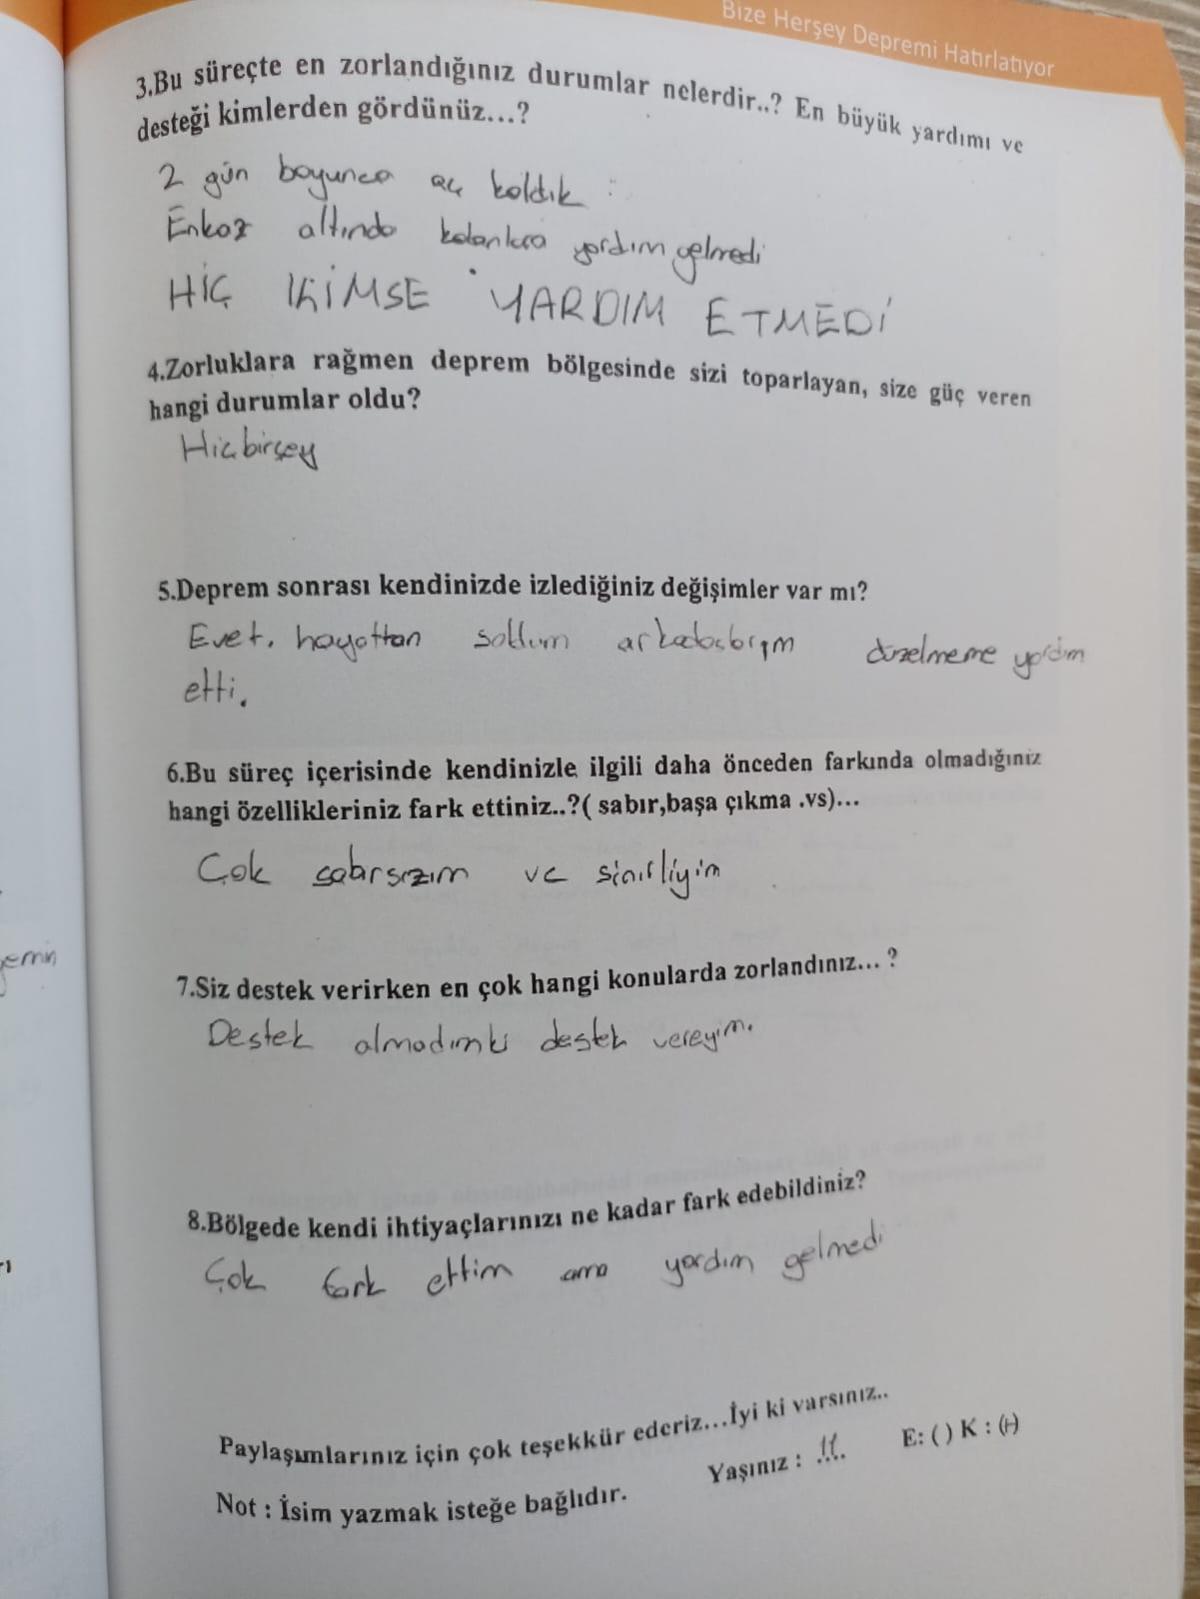 Bize Herşey Depremi Hatırlatıyor
3.Bu süreçte en zorlandığınız durumlar nelerdir..? En büyük yardımı ve
desteği kimlerden gördünüz...?
2 gün boyunca aç kaldık
Enkaz altında kalanlara yardım gelmedi
HİÇ KİMSE YARDIM ETMEDİ
4.Zorluklara rağmen deprem bölgesinde sizi toparlayan, size güç veren
hangi durumlar oldu?
Hiçbirşey
5.Deprem sonrası kendinizde izlediğiniz değişimler var mı?
Evet. hayattan arkadaşlarım düzelmeme yardım
etti.
6.Bu süreç içerisinde kendinizle ilgili daha önceden farkında olmadığınız
hangi özellikleriniz fark ettiniz..?( sabır,başa çıkma .vs)...
Çok sabırsızım ve sinirliyim
yemin
7.Siz destek verirken en çok hangi konularda zorlandınız... ?
Destek almadımki destek vereyim.
8.Bölgede kendi ihtiyaçlarınızı ne kadar fark edebildiniz?
Çok fark ettim ama yardım gelmedi
Paylaşımlarınız için çok teşekkür ederiz...İyi ki varsınız..
Yaşınız : 11 E: ( ) K : (+)
Not : İsim yazmak isteğe bağlıdır.